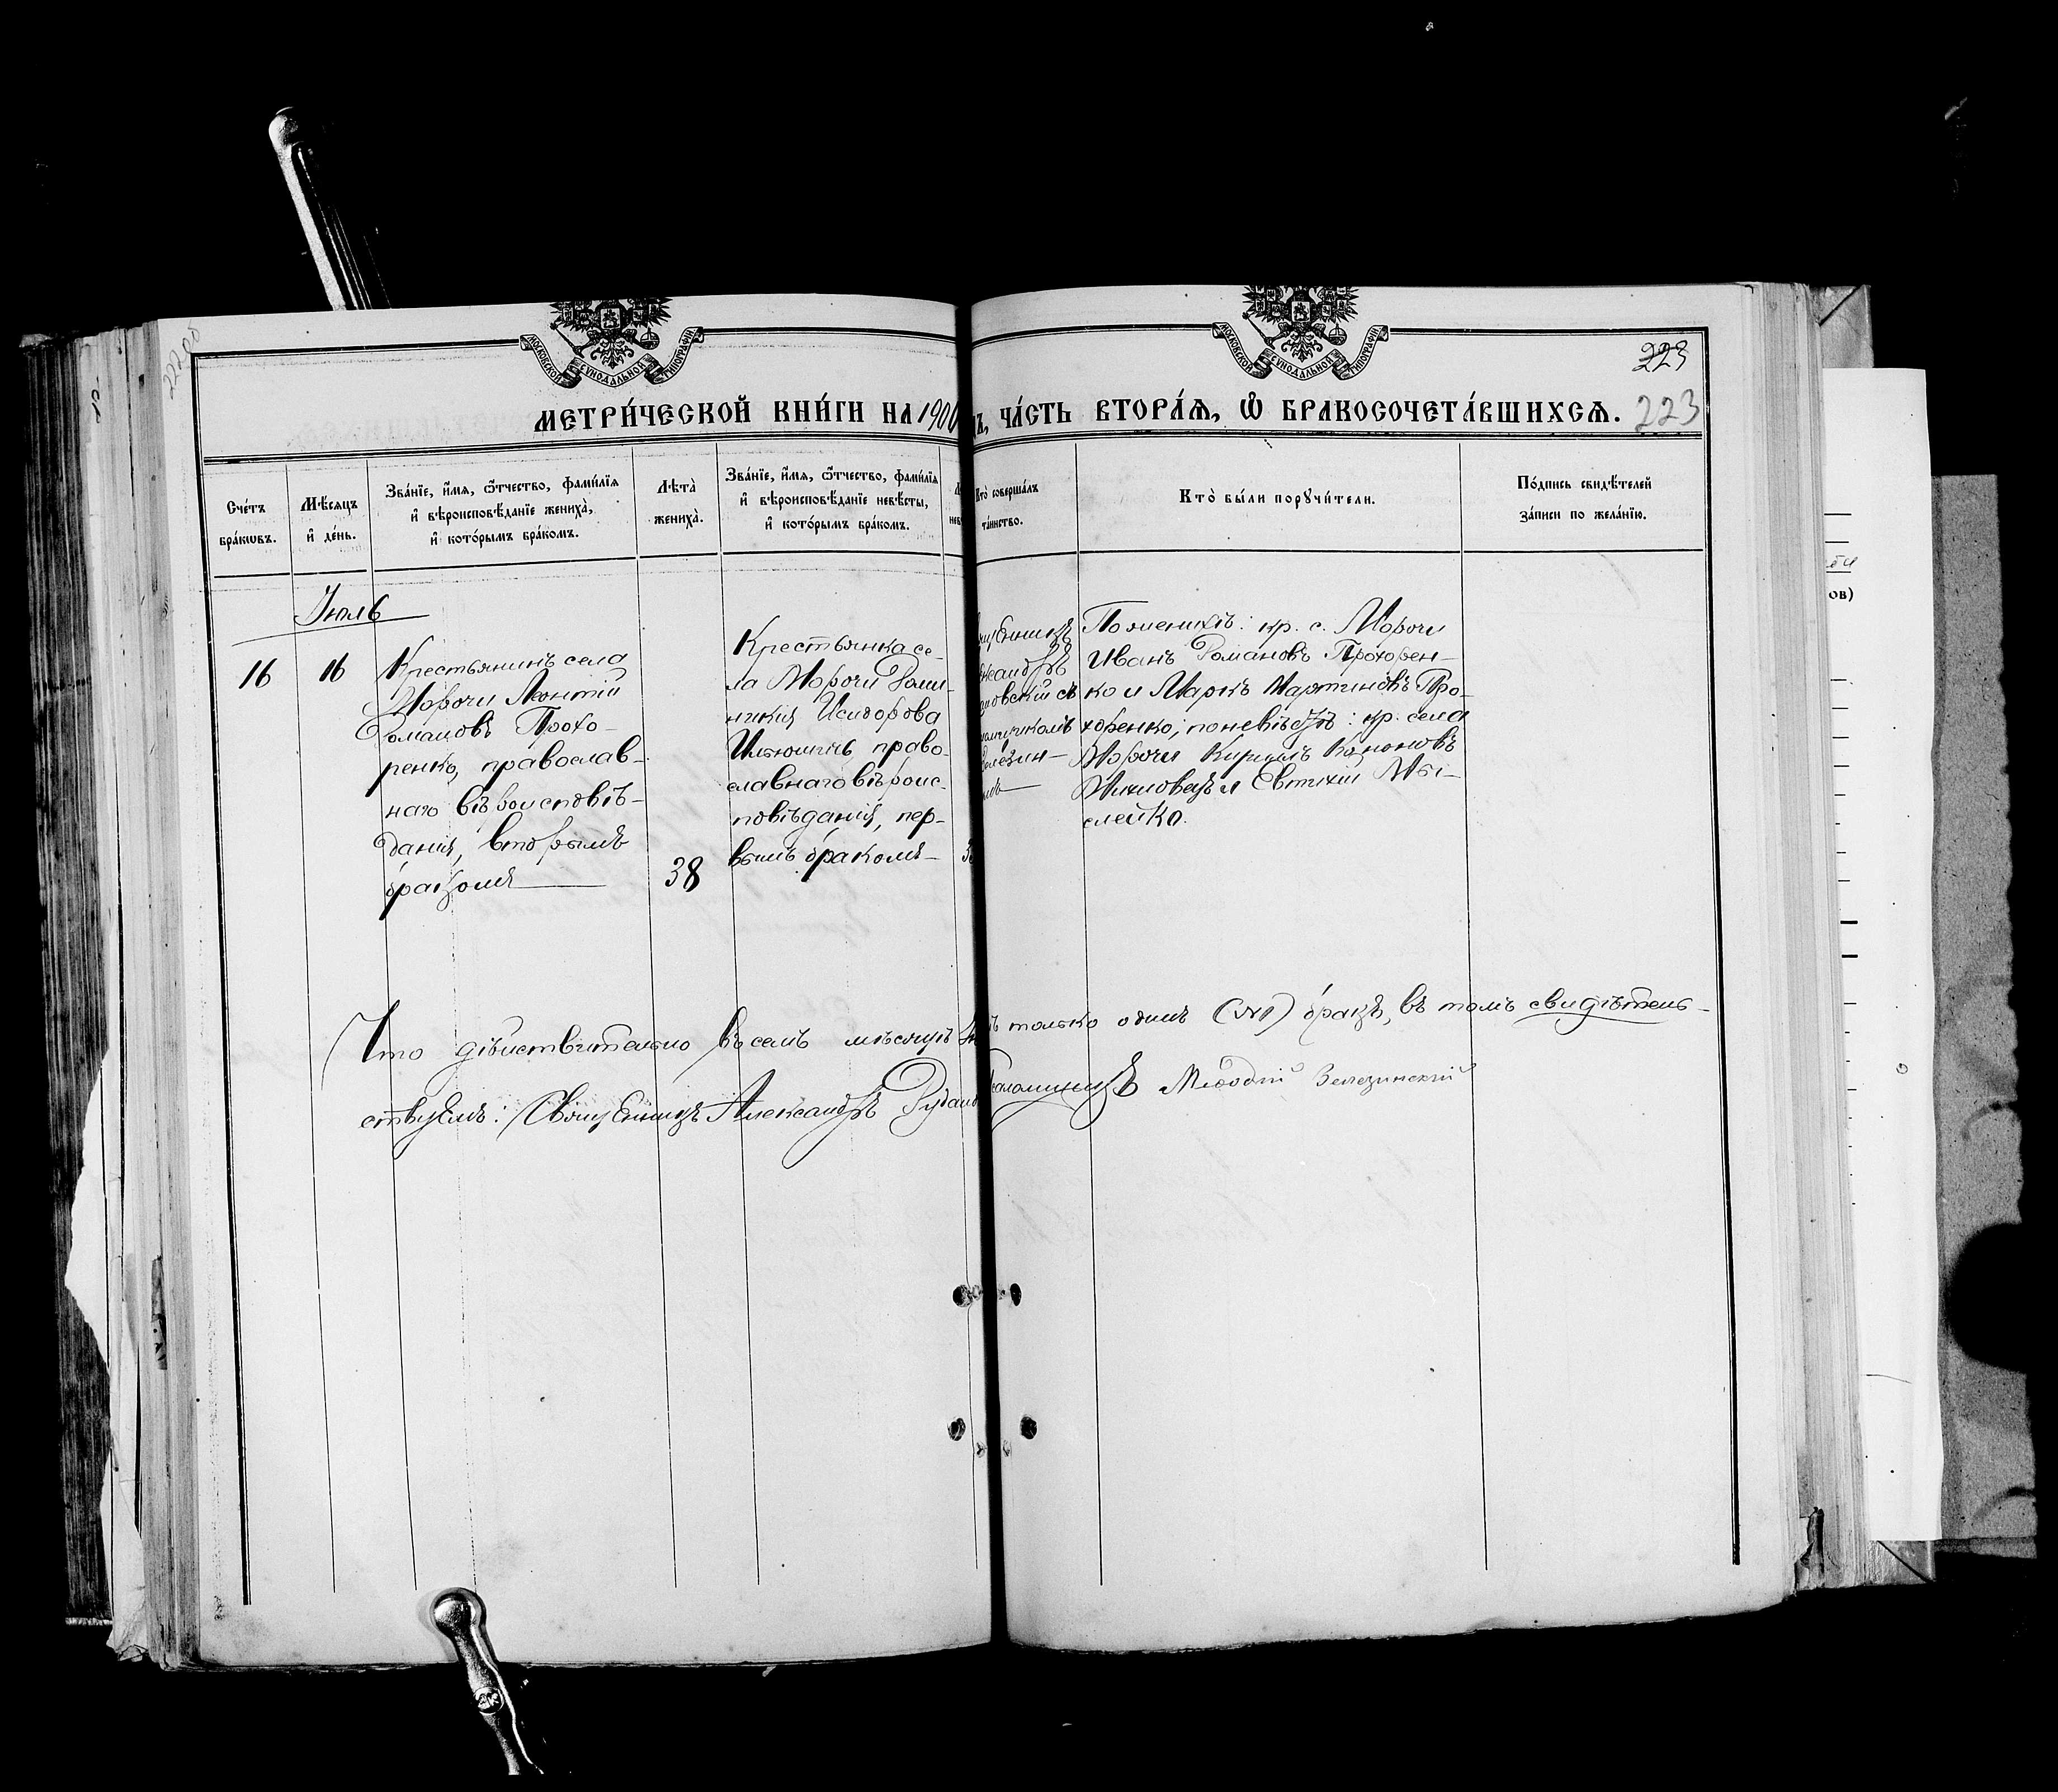 МОСКОВСКОЙ СУНОДАЛЬНОЙ ТИПОГРАФІИ
МОСКОВСКОЙ СУНОДАЛЬНОЙ ТИПОГРАФІИ
223
МЕТРИ́ЧЕСКОЙ КНИ́ГИ НА 1900
Ъ, ЧА́СТЬ ВТОРА́Я, Ѿ БРАКОСОЧЕТА́ВШИХСЯ. 223
Сче́тъ
бра́кѡвъ.
Мѣ́сяцъ
и҆ де́нь.
Зва́нїе, и҆́мя, ѻ҆́тчество, фами́лїя
и҆ вѣроисповѣ́данїе жениха̀,
и҆ кото́рымъ бра́комъ.
Лѣта̀
жениха̀.
Зва́нїе, и҆́мя, ѻ҆́тчество, фами́лїя
и҆ вѣроисповѣ́данїе невѣ́сты,
и҆ кото́рымъ бра́комъ.
Кто̀ соверша́лъ
та́инство.
Кто̀ бы́ли порꙋчи́тели.
По́дпись свидѣ́телей
за́писи по жела́нїю.
Іюль
16
16
Крестьянинъ села
Морочи Леонтій
Романовъ Прохо-
ренко, православ-
наго вѣроисповѣ-
данія, вторымъ
бракомъ
38
Крестьянка се-
ла Морочи
Исидорова
право-
славнаго вѣроис-
повѣданія, пер-
вымъ бракомъ
щенникъ
ксандръ
довскій съ
ломщикомъ
Зелезин-
По женихѣ: кр. с. Морочи
Иванъ Романовъ Прохорен-
ко и Маркъ Мартиновъ Про-
хоренко; по невѣстѣ: кр. села
Морочи Кириллъ Кононовъ
и Евтихій Мы-
слейко.
Что дѣйствительно въ семъ мѣсяцѣ
только одинъ (№1) бракъ, въ томъ свидѣтель-
ствуемъ: Священникъ Александръ Рудано
Псаломщикъ Меѳодій Зелезинскій
ов)